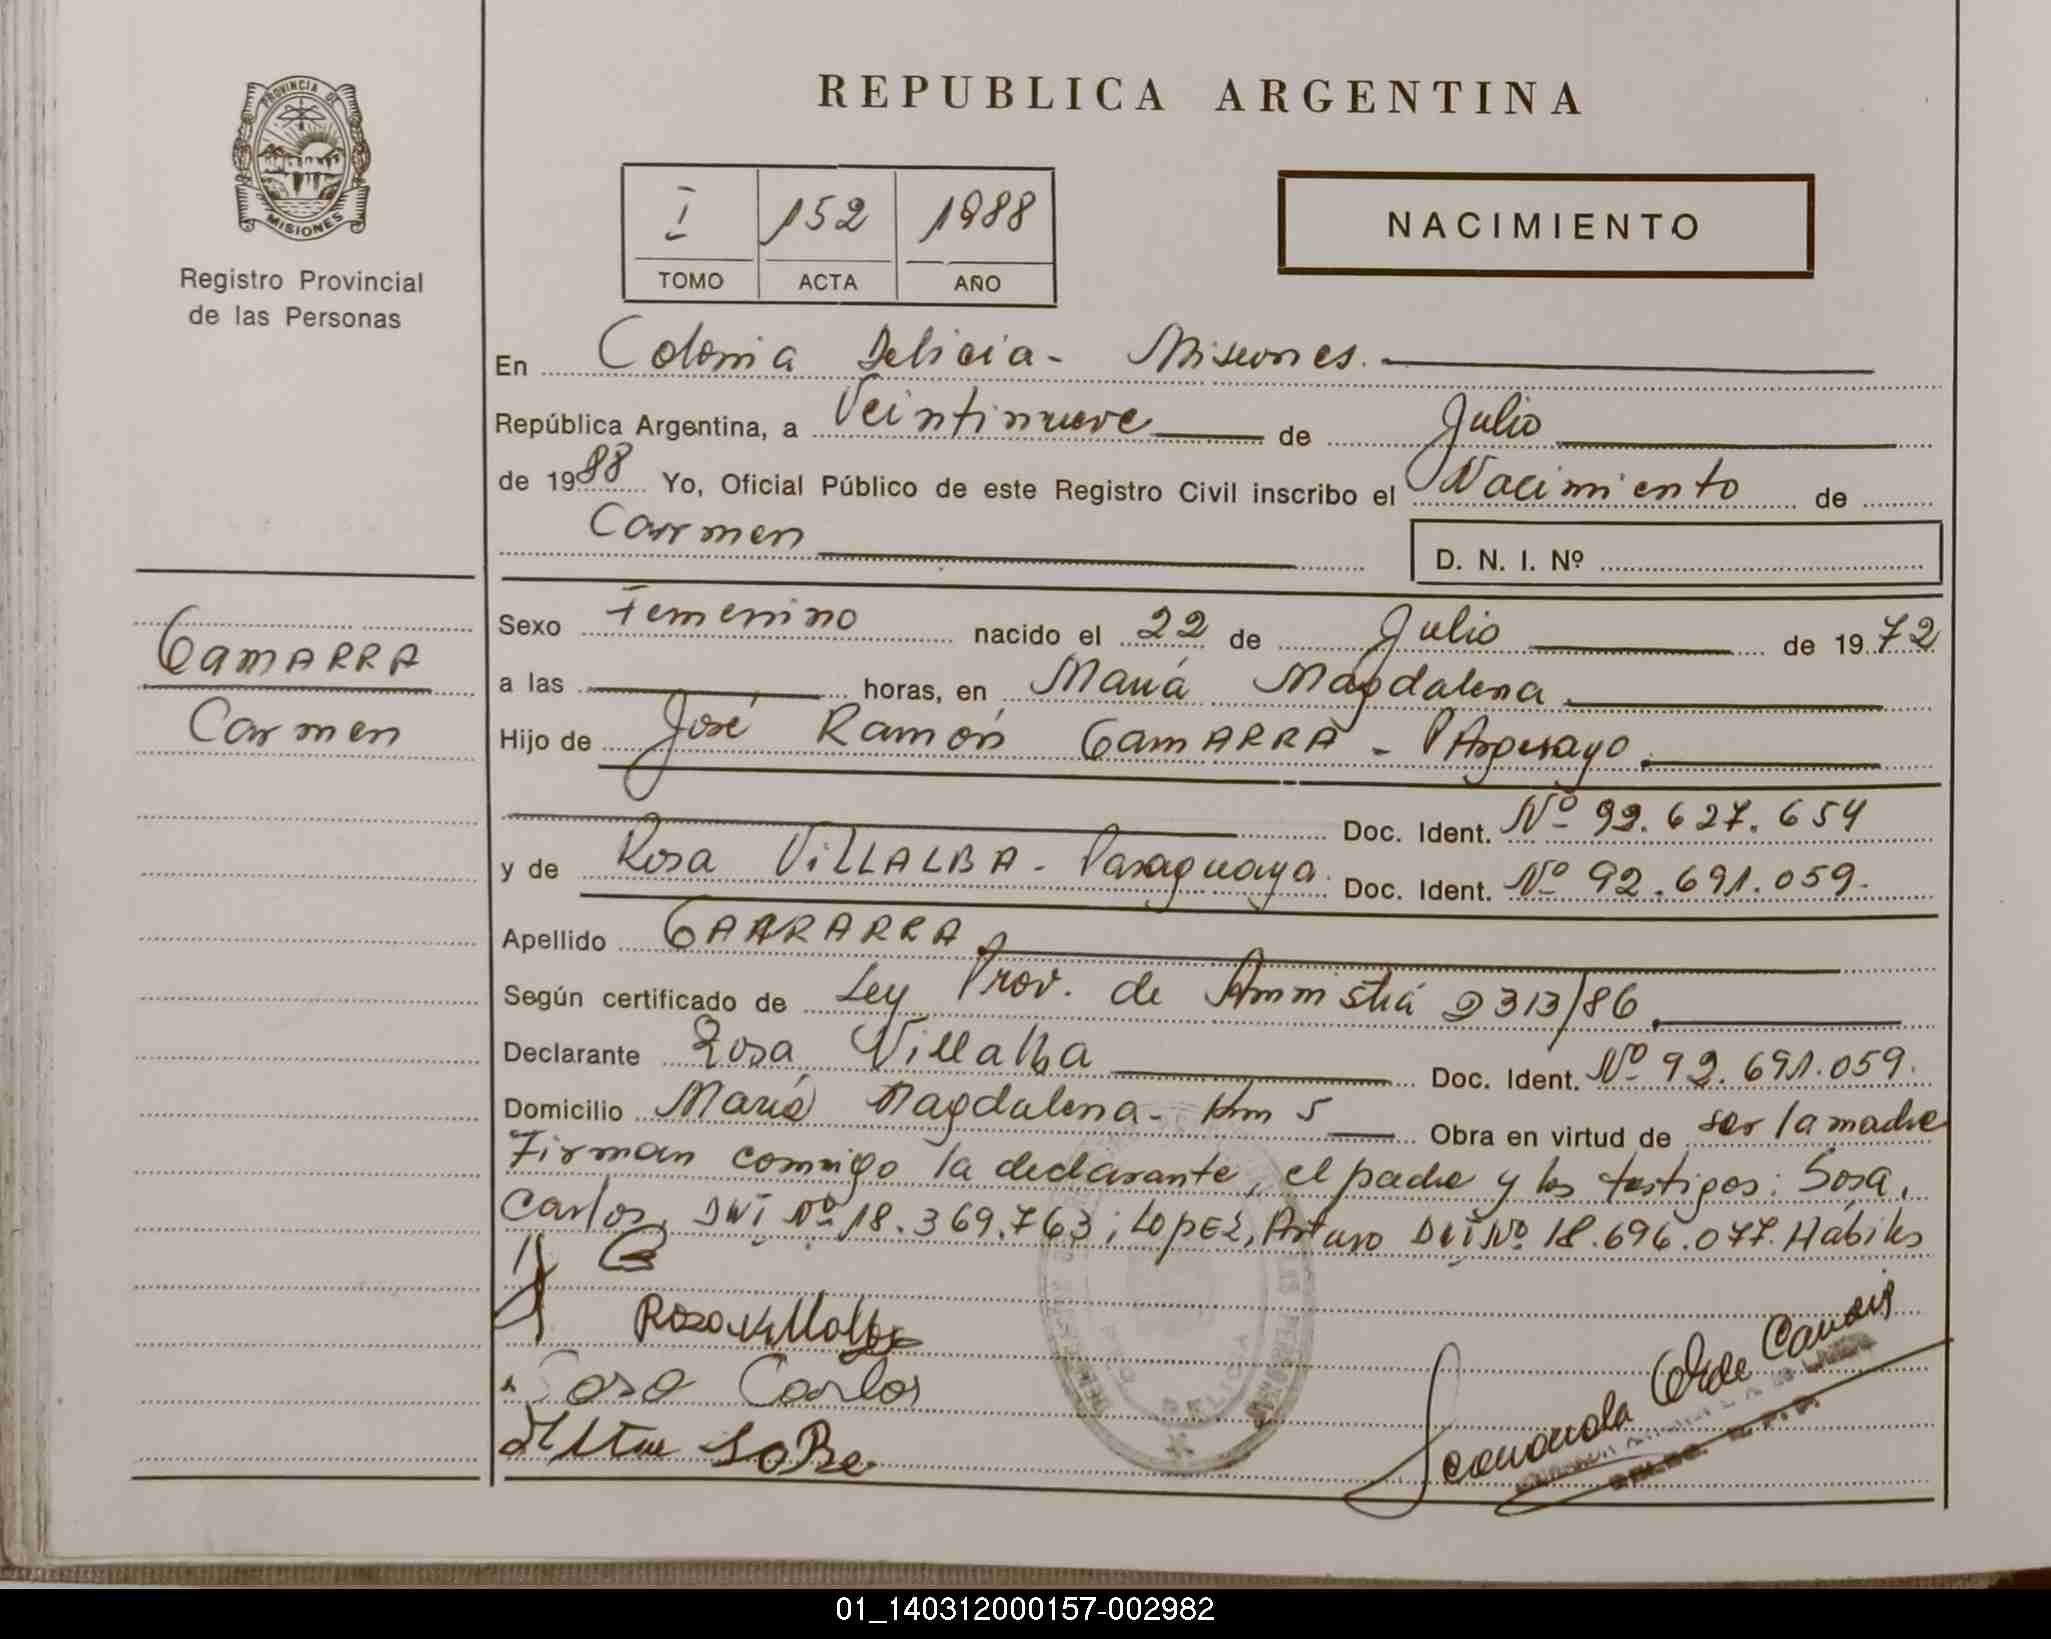 REPUBLICA ARGENTINA
PROVINCIA DE
MISIONES
Registro Provincial
de las Personas
I 152 1988
TOMO ACTA AÑO
NACIMIENTO
En Colonia Delicia - Misiones.
República Argentina, a Veintinueve de Julio
de 1988 Yo, Oficial Público de este Registro Civil inscribo el Nacimiento de
Carmen
D. N. I. Nº
GAMARRA
Carmen
Sexo Femenino nacido el 22 de Julio de 1972
a las horas, en María Magdalena
Hijo de José Ramón GAMARRA -
Doc. Ident. Nº 92.627.654
y de Rosa VILLALBA - Paraguaya. Doc. Ident. Nº 92.691.059.
Apellido
Según certificado de Ley Prov. de Amnistía 2313/86
Declarante Rosa Villalba Doc. Ident. Nº 92.691.059.
Domicilio María Magdalena - Km 5 Obra en virtud de ser la madre
Firman conmigo la declarante, el padre y los testigos: Sosa,
Carlos, DNI Nº 18.369.763; LOPEZ, Arturo DNI Nº 18.696.077. Hábiles
Rosa Villalba
Sosa Carlos
01_140312000157-002982